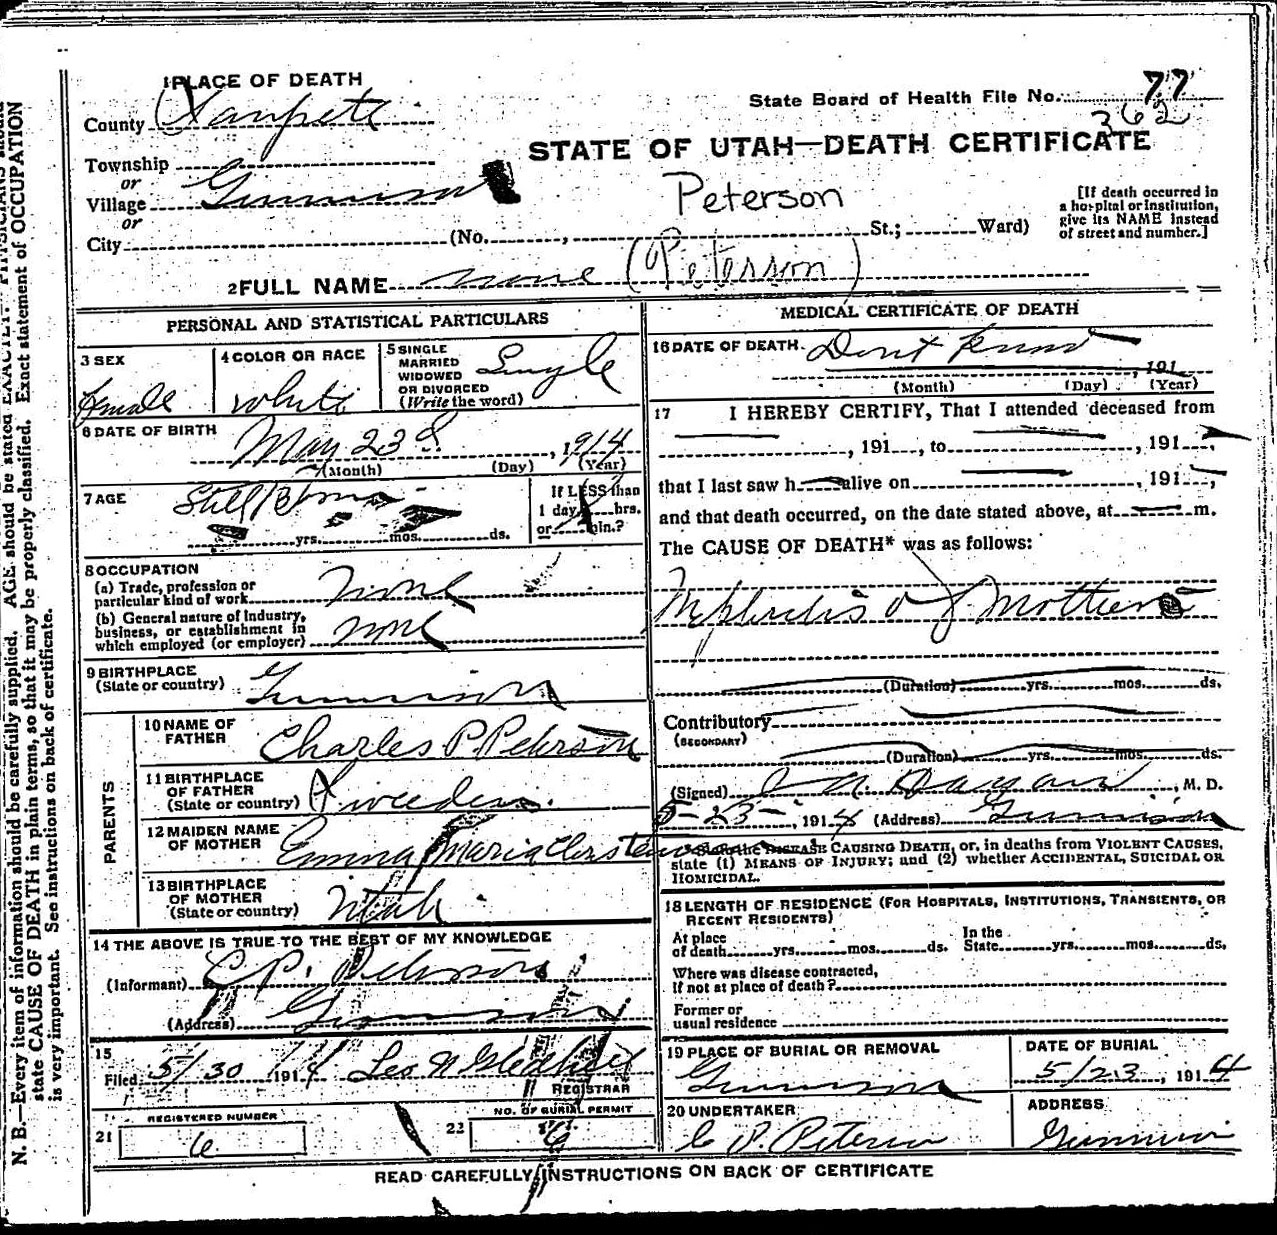 1 PLACE OF DEATH
County Sanpete
State Board of Health File No. 77
362
Township
or
Village Gunnison
or
City (No. , St.; Ward)
STATE OF UTAH—DEATH CERTIFICATE
Peterson
[If death occurred in
a hospital or institution,
give its NAME instead
of street and number.]
2 FULL NAME none (Peterson)
PERSONAL AND STATISTICAL PARTICULARS
3 SEX
Female
4 COLOR OR RACE
White
5 SINGLE
MARRIED
WIDOWED
OR DIVORCED
(Write the word)
Single
6 DATE OF BIRTH
May 23d, 1914
(Month) (Day) (Year)
7 AGE
Still Born
yrs. mos. ds.
If LESS than
1 day, hrs.
or min.?
8 OCCUPATION
(a) Trade, profession or
particular kind of work None
(b) General nature of Industry,
business, or establishment in
which employed (or employer) none
9 BIRTHPLACE
(State or country) Gunnison
PARENTS
10 NAME OF
FATHER Charles P. Peterson
11 BIRTHPLACE
OF FATHER
(State or country) Sweeden.
12 MAIDEN NAME
OF MOTHER Emma Maria
13 BIRTHPLACE
OF MOTHER
(State or country) Utah
14 THE ABOVE IS TRUE TO THE BEST OF MY KNOWLEDGE
(Informant) C P. Peterson
(Address) Gunnison
15
Filed 5/30 1914 Leo
REGISTRAR
REGISTERED NUMBER
21 6
NO. OF BURIAL PERMIT
22 6
MEDICAL CERTIFICATE OF DEATH
16 DATE OF DEATH. Dont know
, 191
(Month) (Day) (Year)
17 I HEREBY CERTIFY, That I attended deceased from
, 191 , to , 191 ,
that I last saw h alive on , 191 ,
and that death occurred, on the date stated above, at m.
The CAUSE OF DEATH* was as follows:
Nephritis of Mother
(Duration) yrs. mos. ds.
Contributory
(SECONDARY)
(Duration) yrs. mos. ds.
(Signed) , M. D.
5-23-, 1914 (Address) Gunnison
DISEASE CAUSING DEATH, or, in deaths from VIOLENT CAUSES,
state (1) MEANS OF INJURY; and (2) whether ACCIDENTAL, SUICIDAL OR
HOMICIDAL.
18 LENGTH OF RESIDENCE (FOR HOSPITALS, INSTITUTIONS, TRANSIENTS, OR
RECENT RESIDENTS)
At place
of death yrs. mos. ds.
In the
State yrs. mos. ds.
Where was disease contracted,
If not at place of death?
Former or
usual residence
19 PLACE OF BURIAL OR REMOVAL
Gunnison
DATE OF BURIAL
5/23, 1914
20 UNDERTAKER
C P. Peterson
ADDRESS
Gunnison
READ CAREFULLY INSTRUCTIONS ON BACK OF CERTIFICATE
N. B.—Every item of information should be carefully supplied. AGE should be stated EXACTLY. PHYSICIANS should
state CAUSE OF DEATH in plain terms, so that it may be properly classified. Exact statement of OCCUPATION
is very important. See instructions on back of certificate.